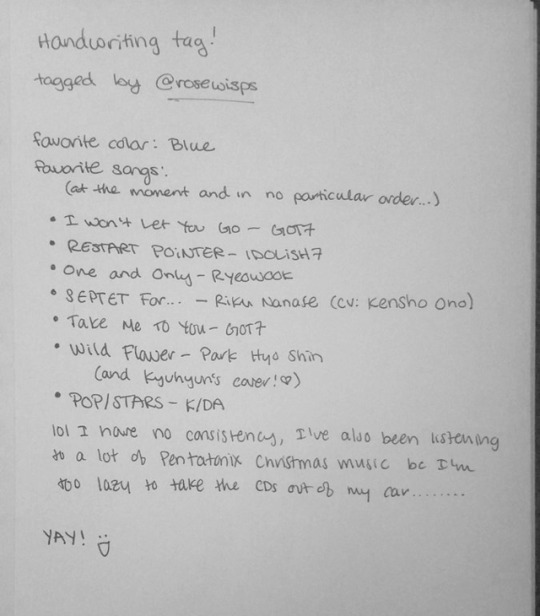 Handwriting tag!
tagged by @rosewisps
favorite color: Blue
favorite songs:
(at the moment and in no particular order...)
• I won't Let You Go - GOT7
• RESTART POiNTER - IDOLiSH7
• One and Only - Ryeowook
• SEPTET For... - Riku Nanase (cv: Kensho Ono)
• Take Me To You - GOT7
• Wild Flower - Park Hyo Shin
(and Kyuhyun's cover!♡)
• POP/STARS - K/DA
lol I have no consistency, I've also been listening
to a lot of Pentatonix Christmas music bc I'm
too lazy to take the CDs out of my car........
YAY! :D